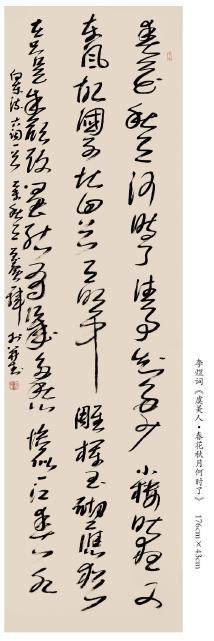 春花秋月何時了往事知多少小樓昨夜又
東風故國不堪回首月明中雕欄玉砌應猶
在只是朱顏改問君能有幾多愁恰似一江春水
李煜词《虞美人·春花秋月何时了》 176cm×43cm